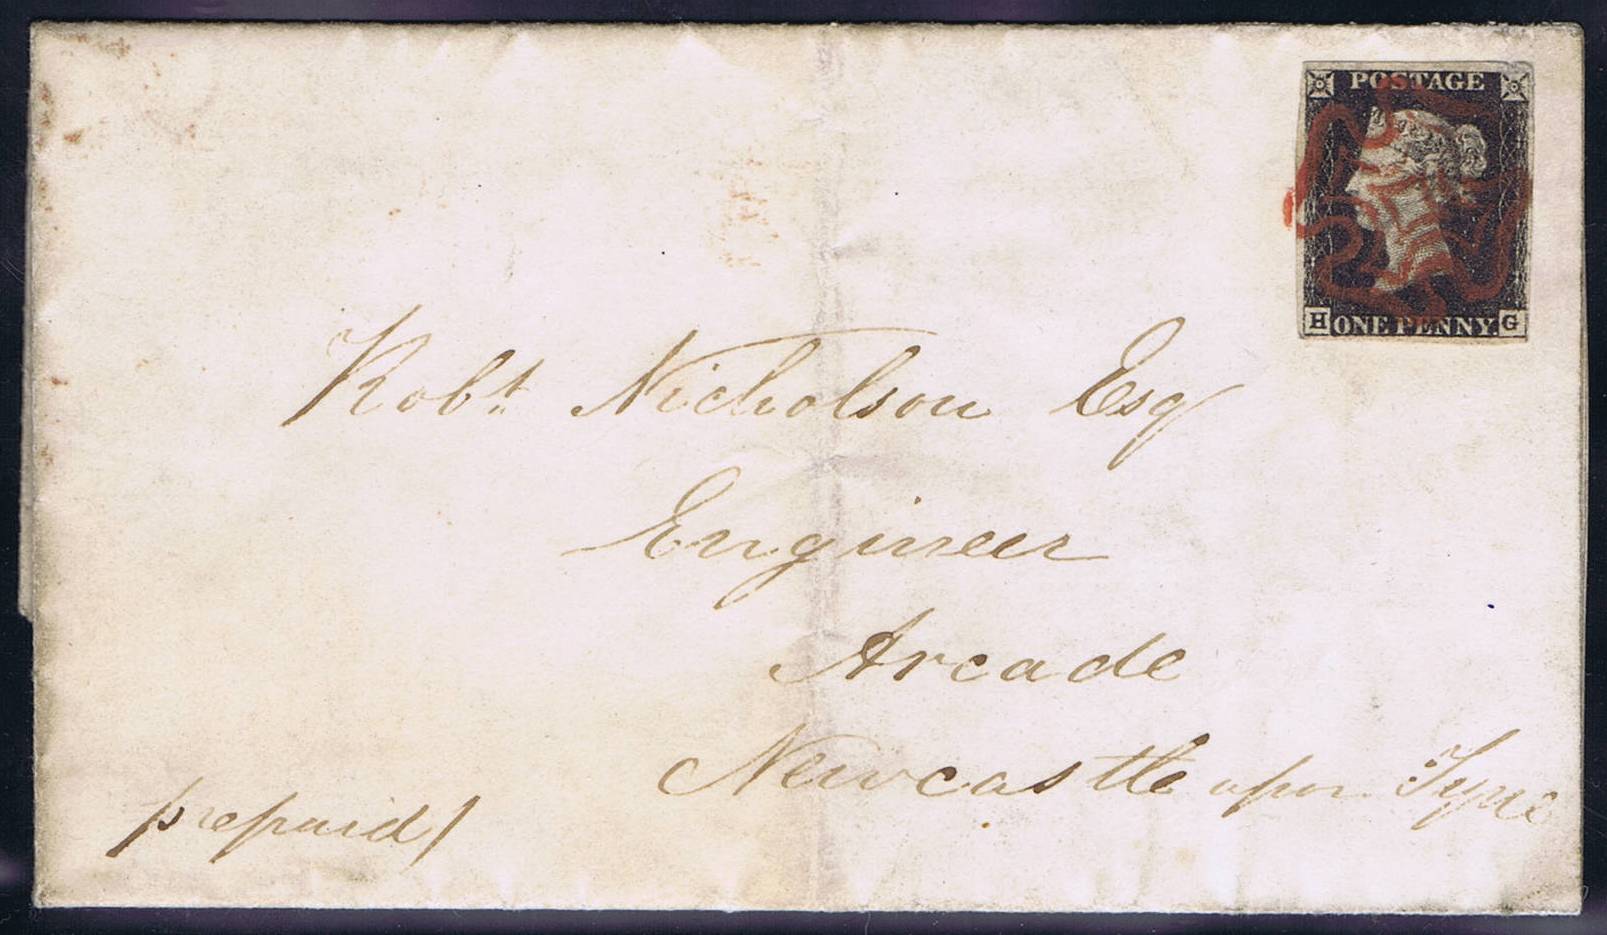 POSTAGE
H ONE PENNY. G
Robt Nicholson Esq
Engineer
Arcade
Newcastle upon Tyne
prepaid/